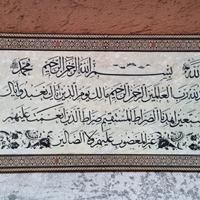 الله بسم الله الرحمن الرحيم محمد
لله رب العالمين الرحمن الرحيم مالك يوم الدين اياك نعبد واياك
نستعين اهدنا الصراط المستقيم صراط الذين انعمت عليهم
غير المغضوب عليهم ولا الضالين